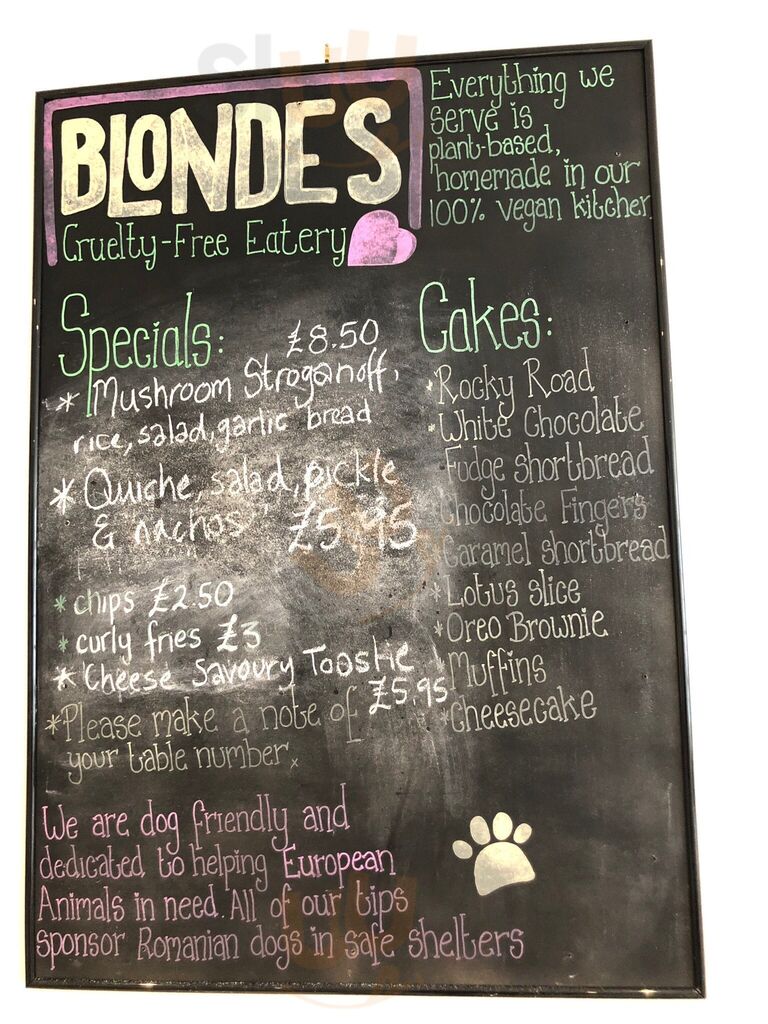 BLONDES
Cruelty-Free Eatery
Everything we
serve is
plant-based,
homemade in our
100% vegan kitchen
Specials:
£8.50
* Mushroom Stroganoff,
rice, salad, garlic bread
* Quiche, salad, pickle
& nachos £5.95
* chips £2.50
* curly fries £3
* Cheese Savoury Toastie
£5.95
*Please make a note of
your table number.x
Cakes:
*Rocky Road
*White Chocolate
Fudge shortbread
Chocolate Fingers
Caramel shortbread
*Lotus slice
*Oreo Brownie
*Muffins
*Cheesecake
We are dog friendly and
dedicated to helping European
Animals in need. All of our tips
sponsor Romanian dogs in safe shelters